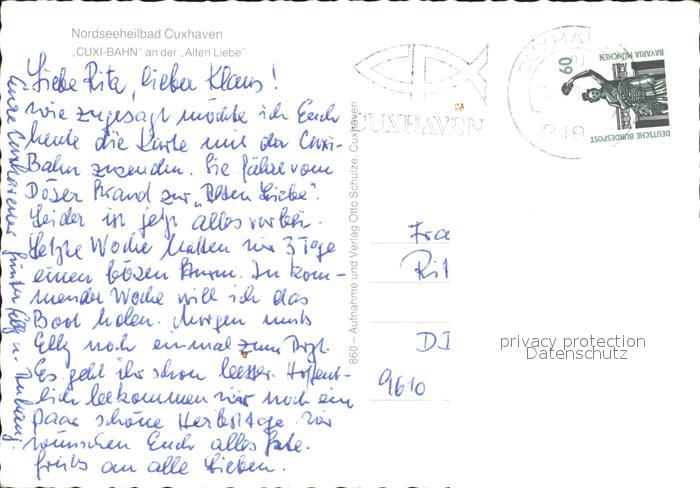 Nordseeheilbad Cuxhaven
„CUXI-BAHN" an der „Alten Liebe"
Liebe Rita, lieber Klaus!
Wie zugesagt möchte ich Euch
heute die Karte mit der Cuxi-
Bahn zusenden. Sie fährt vom
Döser Strand zur „Alten Liebe".
Leider ist jetzt alles vorbei.
Letzte Woche hatten wir 3 Tage
einen bösen Sturm. In kom-
mender Woche will ich das
Boot holen. Morgen muß
Elly noch einmal zum Arzt.
Es geht ihr schon besser. Hoffent-
lich bekommen wir noch ein
paar schöne Herbsttage. Wir
wünschen Euch alles Gute.
Gruß an alle Lieben.
Eure Cuxhavener Günter, Elly u. Anhang.
860 – Aufnahme und Verlag Otto Schulze, Cuxhaven
CUXHAVEN
CUXHA
219
60
BAVARIA MÜNCHEN
DEUTSCHE BUNDESPOST
Fra
Rit
DD
9610
privacy protection
Datenschutz